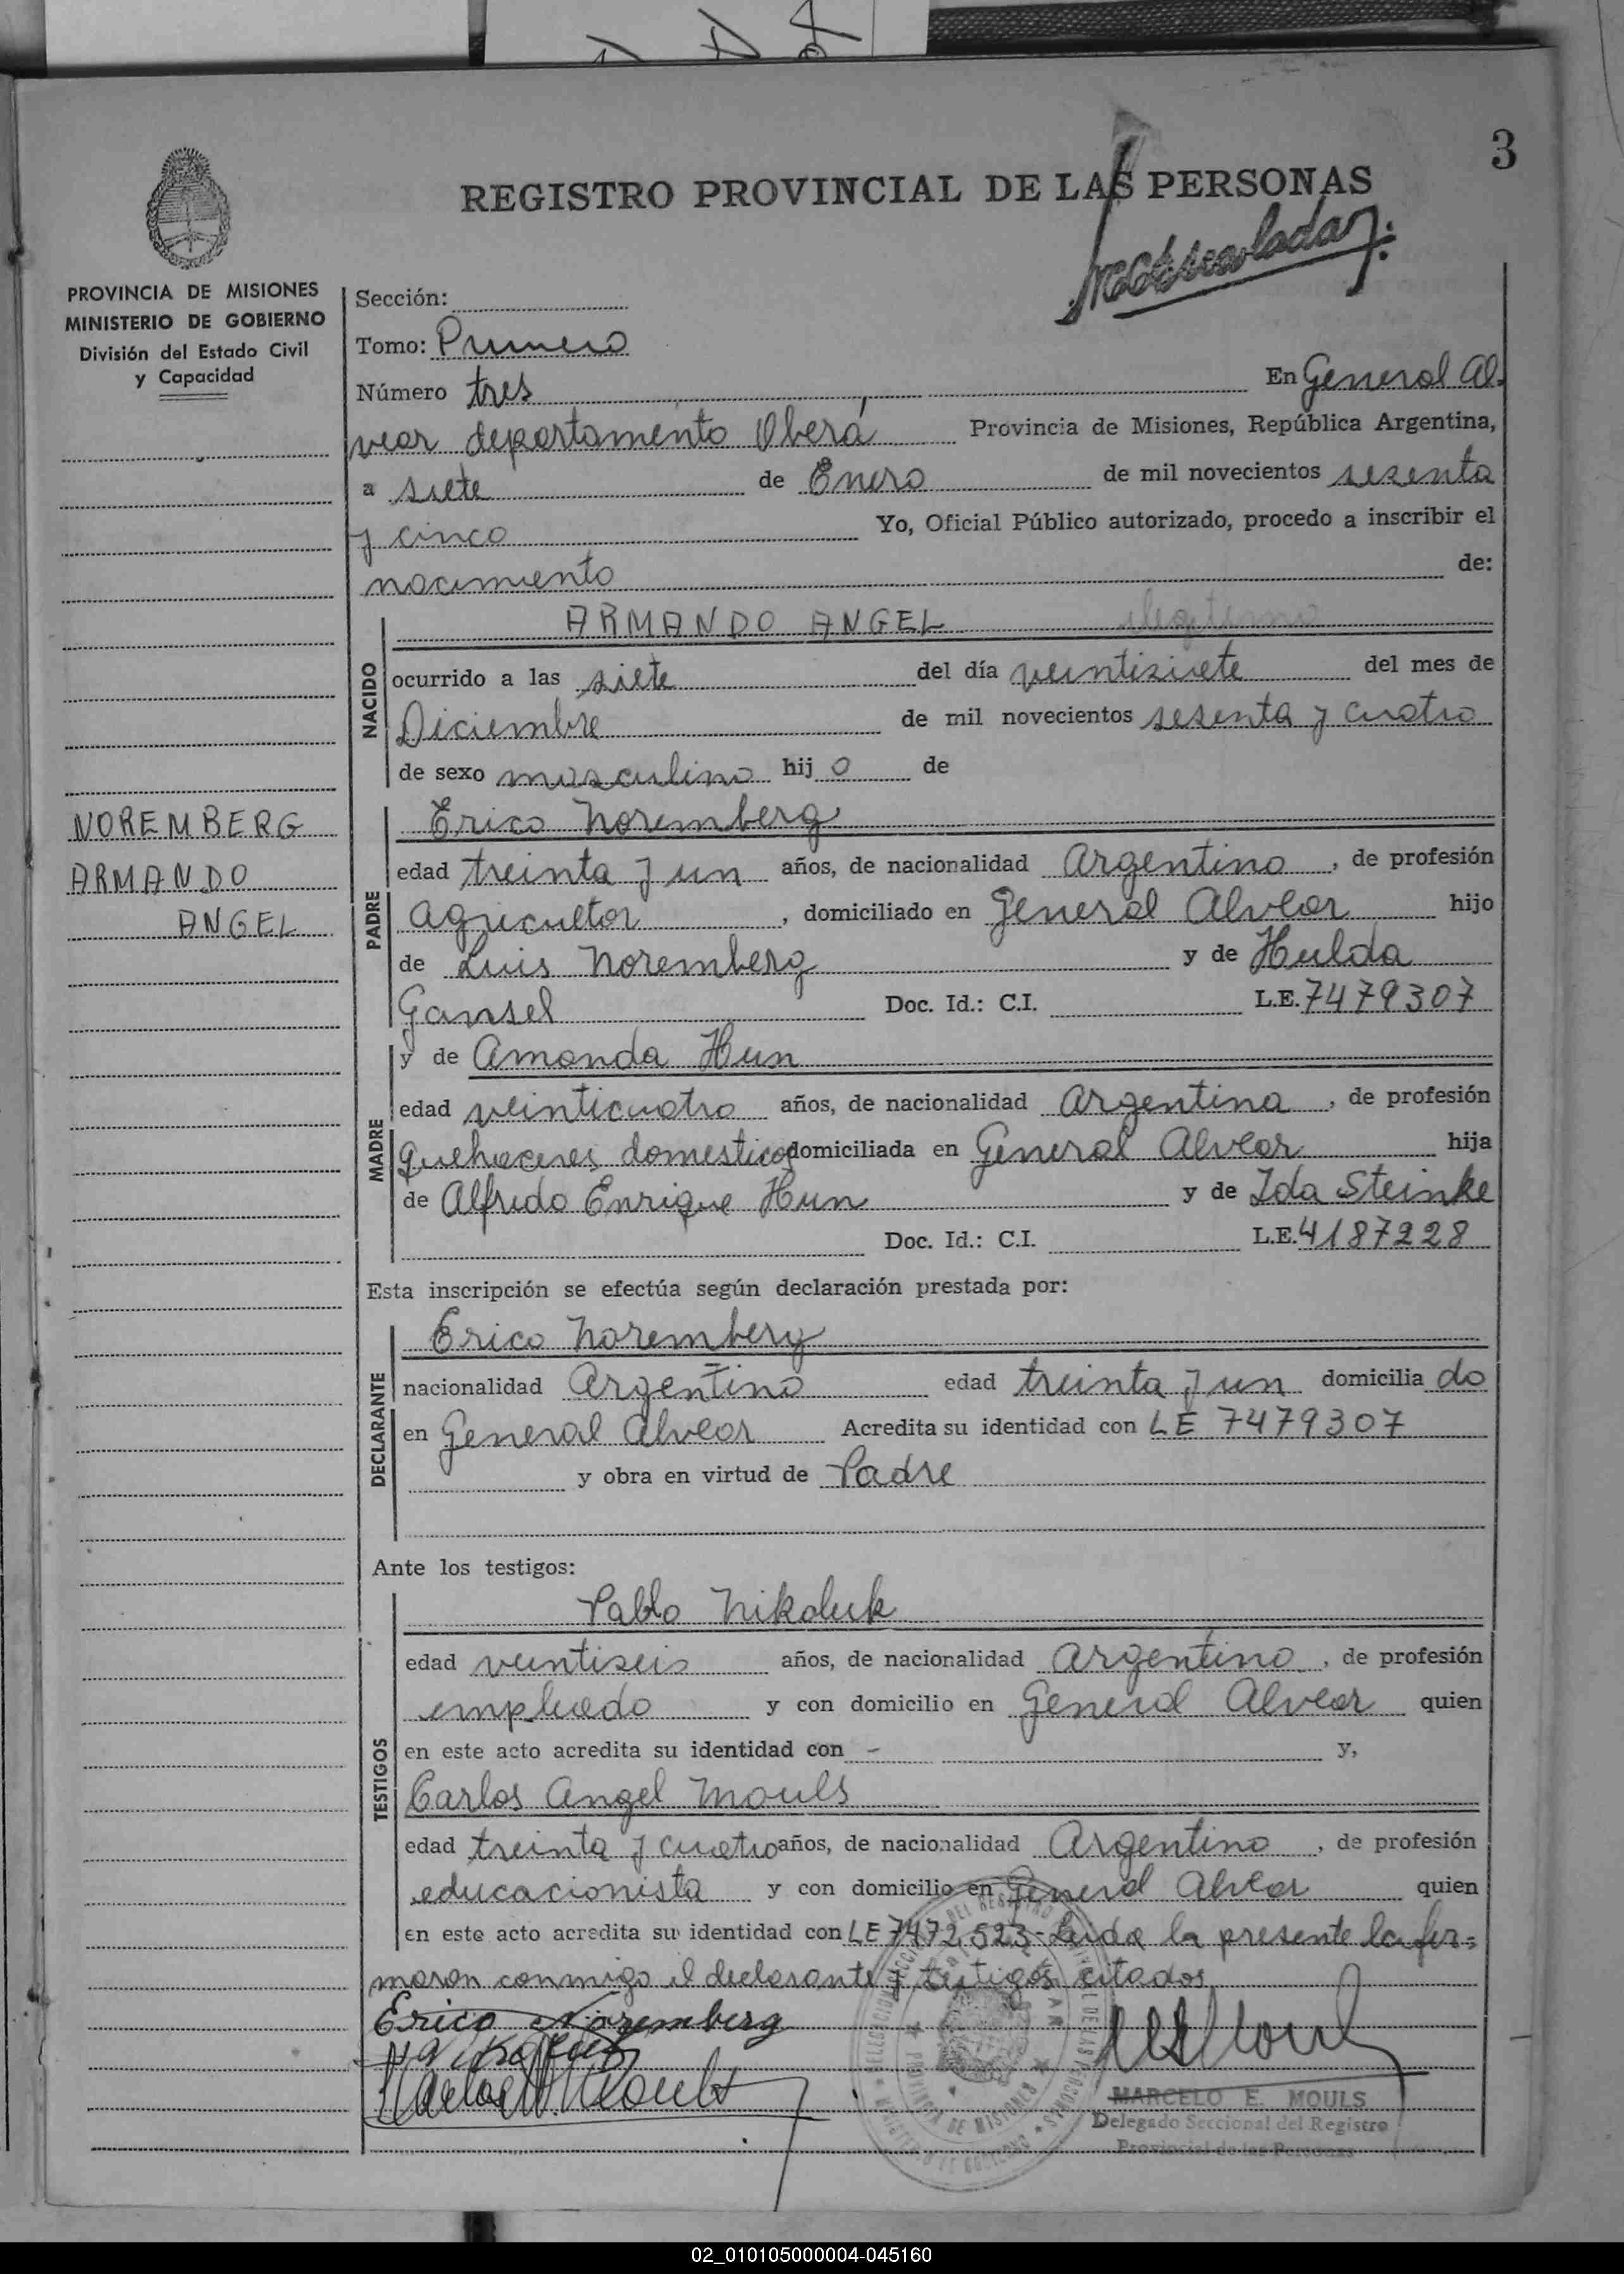 3
REGISTRO PROVINCIAL DE LAS PERSONAS
PROVINCIA DE MISIONES
MINISTERIO DE GOBIERNO
División del Estado Civil
y Capacidad
Sección:
Tomo: Primero
Número tres En General Al-
vear departamento Oberá Provincia de Misiones, República Argentina,
a siete de Enero de mil novecientos sesenta
y cinco Yo, Oficial Público autorizado, procedo a inscribir el
nacimiento de:
ARMANDO ANGEL
NACIDO
ocurrido a las siete del día veintisiete del mes de
Diciembre de mil novecientos sesenta y cuatro
de sexo masculino hij o de
NOREMBERG
ARMANDO
ANGEL
PADRE
Erico Noremberg
edad treinta y un años, de nacionalidad Argentino, de profesión
agricultor, domiciliado en General Alvear hijo
de Luis Noremberg y de Hulda
Gansel Doc. Id.: C.I. L.E. 7479307
MADRE
y de Amanda Hun
edad veinticuatro años, de nacionalidad Argentina, de profesión
quehaceres domesticos domiciliada en General Alvear hija
de Alfredo Enrique Hun y de Ida Steinke
Doc. Id.: C.I. L.E. 4187228
Esta inscripción se efectúa según declaración prestada por:
DECLARANTE
Erico Noremberg
nacionalidad Argentino edad treinta y un domicilia do
en General Alvear Acredita su identidad con LE 7479307
y obra en virtud de Padre
Ante los testigos:
TESTIGOS
Pablo Nikoluk
edad veintiseis años, de nacionalidad Argentino, de profesión
empleado y con domicilio en General Alvear quien
en este acto acredita su identidad con - y,
Carlos Angel Mouls
edad treinta y cuatro años, de nacionalidad Argentino, de profesión
educacionista y con domicilio en General Alvear quien
en este acto acredita su identidad con LE 7472523- Leida la presente la fir-
maron conmigo el declarante y testigos citados
Erico Noremberg
MARCELO E. MOULS
Delegado Seccional del Registro
Provincial de las Personas
PROVINCIA DE MISIONES
02_010105000004-045160